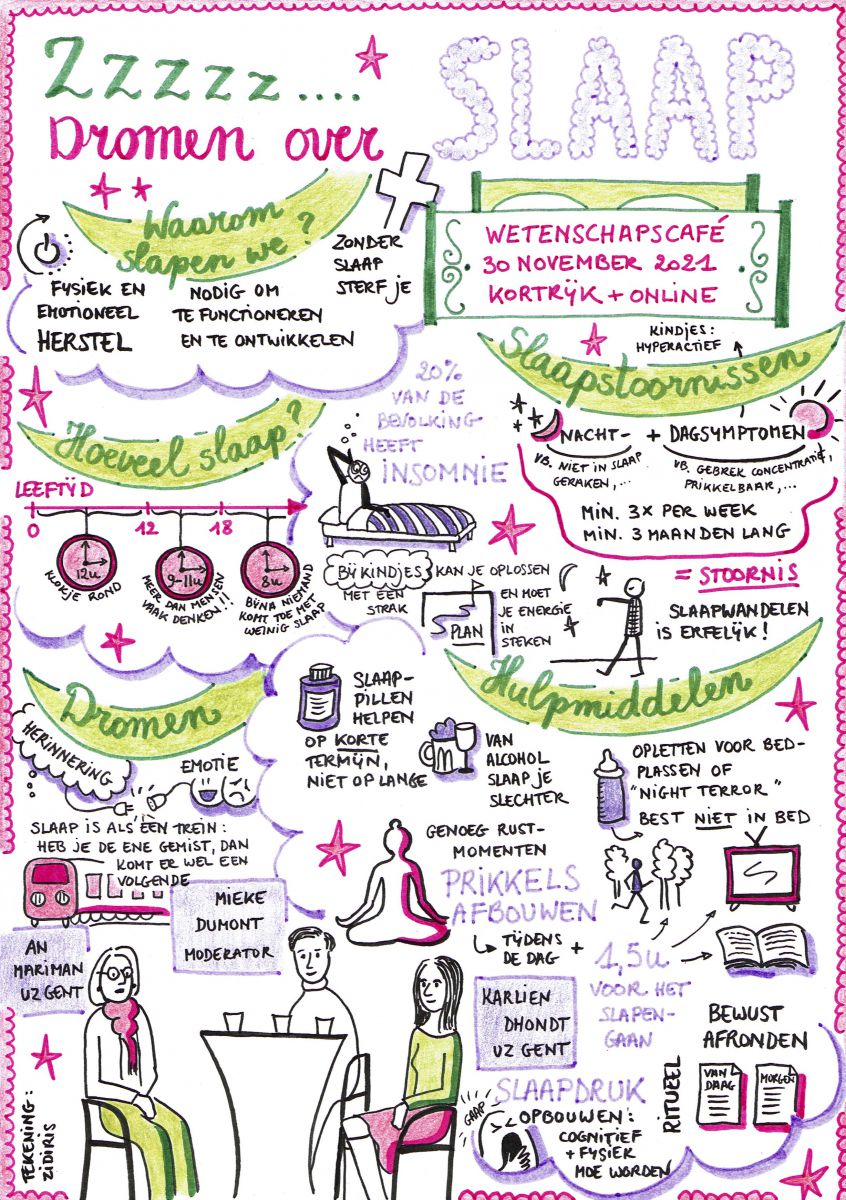 Zzzzz....
Dromen over
SLAAP
Waarom
slapen we?
FYSIEK EN
EMOTIONEEL
HERSTEL
NODIG OM
TE FUNCTIONEREN
EN TE ONTWIKKELEN
ZONDER
SLAAP
STERF JE
WETENSCHAPSCAFÉ
30 NOVEMBER 2021
KORTRIJK + ONLINE
Hoeveel slaap?
LEEFTIJD
0 12 18
12u
KLOKJE ROND
9-11u
MEER DAN MENSEN
VAAK DENKEN!!
8u
BIJNA NIEMAND
KOMT TOE MET
WEINIG SLAAP
20%
VAN DE
BEVOLKING
HEEFT
INSOMNIE
Slaapstoornissen
KINDJES:
HYPERACTIEF
NACHT- + DAGSYMPTOMEN
VB. NIET IN SLAAP
GERAKEN,...
VB. GEBREK CONCENTRATIE,
PRIKKELBAAR,...
MIN. 3X PER WEEK
MIN. 3 MAANDEN LANG
= STOORNIS
BIJ KINDJES
KAN JE OPLOSSEN
MET EEN
STRAK
PLAN
EN MOET
JE ENERGIE
IN
STEKEN
SLAAPWANDELEN
IS ERFELIJK!
Dromen
HERINNERING
EMOTIE
SLAAP IS ALS EEN TREIN:
HEB JE DE ENE GEMIST, DAN
KOMT ER WEL EEN
VOLGENDE
Hulpmiddelen
SLAAP-
PILLEN
HELPEN
OP KORTE
TERMIJN,
NIET OP LANGE
VAN
ALCOHOL
SLAAP JE
SLECHTER
OPLETTEN VOOR BED-
PLASSEN OF
"NIGHT TERROR"
BEST NIET IN BED
GENOEG RUST-
MOMENTEN
PRIKKELS
AFBOUWEN
TIJDENS
DE DAG
+
1,5u
VOOR HET
SLAPEN-
GAAN
MIEKE
DUMONT
MODERATOR
AN
MARIMAN
UZ GENT
KARLIEN
DHONDT
UZ GENT
BEWUST
AFRONDEN
RITUEEL
VAN
DAAG
MORGEN
SLAAPDRUK
GAAP
OPBOUWEN:
COGNITIEF
+ FYSIEK
MOE WORDEN
TEKENING:
ZIDIRIS